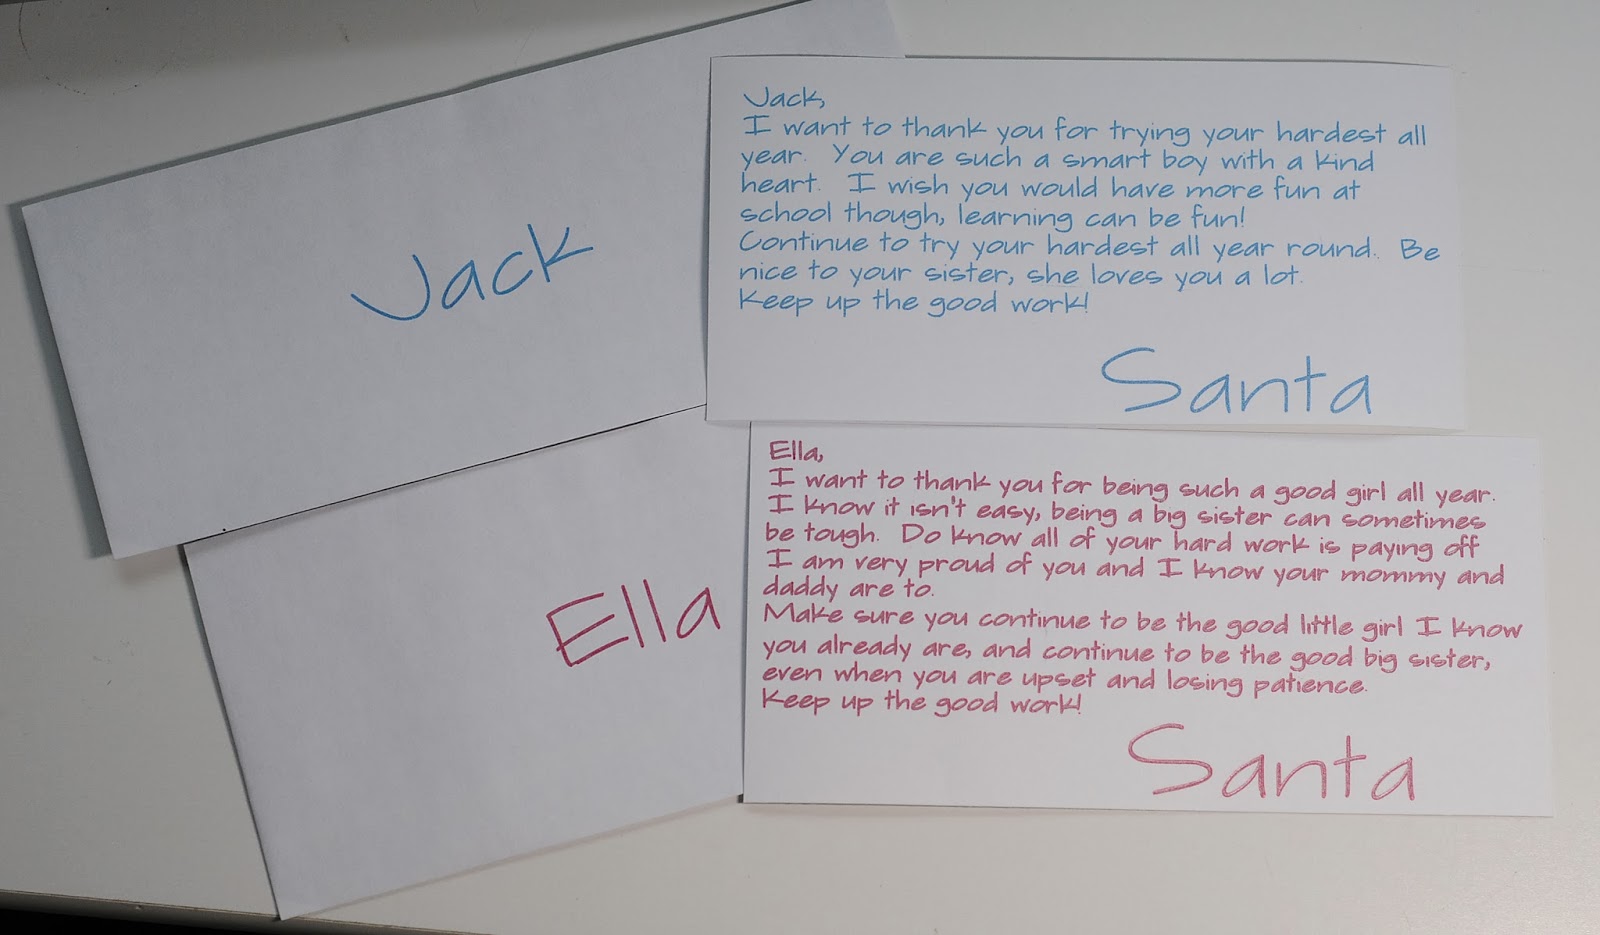 Jack
Jack,
I want to thank you for trying your hardest all
year. You are such a smart boy with a kind
heart. I wish you would have more fun at
school though, learning can be fun!
Continue to try your hardest all year round. Be
nice to your sister, she loves you a lot.
Keep up the good work!
Santa
Ella
Ella,
I want to thank you for being such a good girl all year.
I know it isn't easy, being a big sister can sometimes
be tough. Do know all of your hard work is paying off
I am very proud of you and I know your mommy and
daddy are to.
Make sure you continue to be the good little girl I know
you already are, and continue to be the good big sister,
even when you are upset and losing patience.
Keep up the good work!
Santa